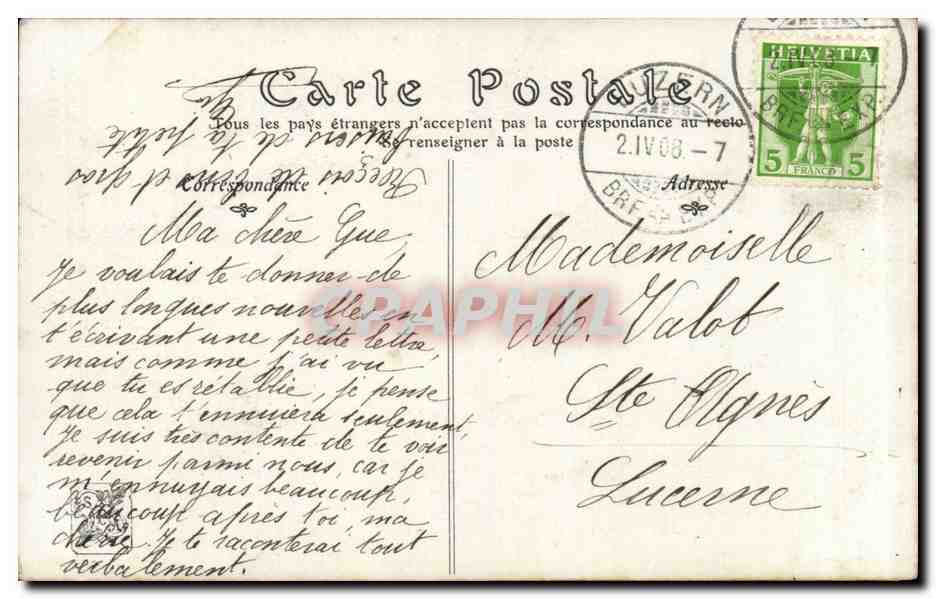 Carte Postale
Tous les pays étrangers n'acceptent pas la correspondance au recto
Se renseigner à la poste
Correspondance
Adresse
HELVETIA
5 FRANCO 5
LUZERN
2.IV.08.-7
BRF. EXP.
CPAPHIL
Reçois de bons et gros
baisers de la petite
Ma chère Gue,
Je voulais te donner de
plus longues nouvelles en
t'écrivant une petite lettre,
mais comme j'ai vu
que tu es rétablie, je pense
que cela t'ennuiera seulement,
Je suis très contente de te voir
revenir parmi nous, car je
m'ennuyais beaucoup,
beaucoup après toi, ma
chérie. Je te raconterai tout
verbalement.
Mademoiselle
M. Valot
Ste Agnès
Lucerne